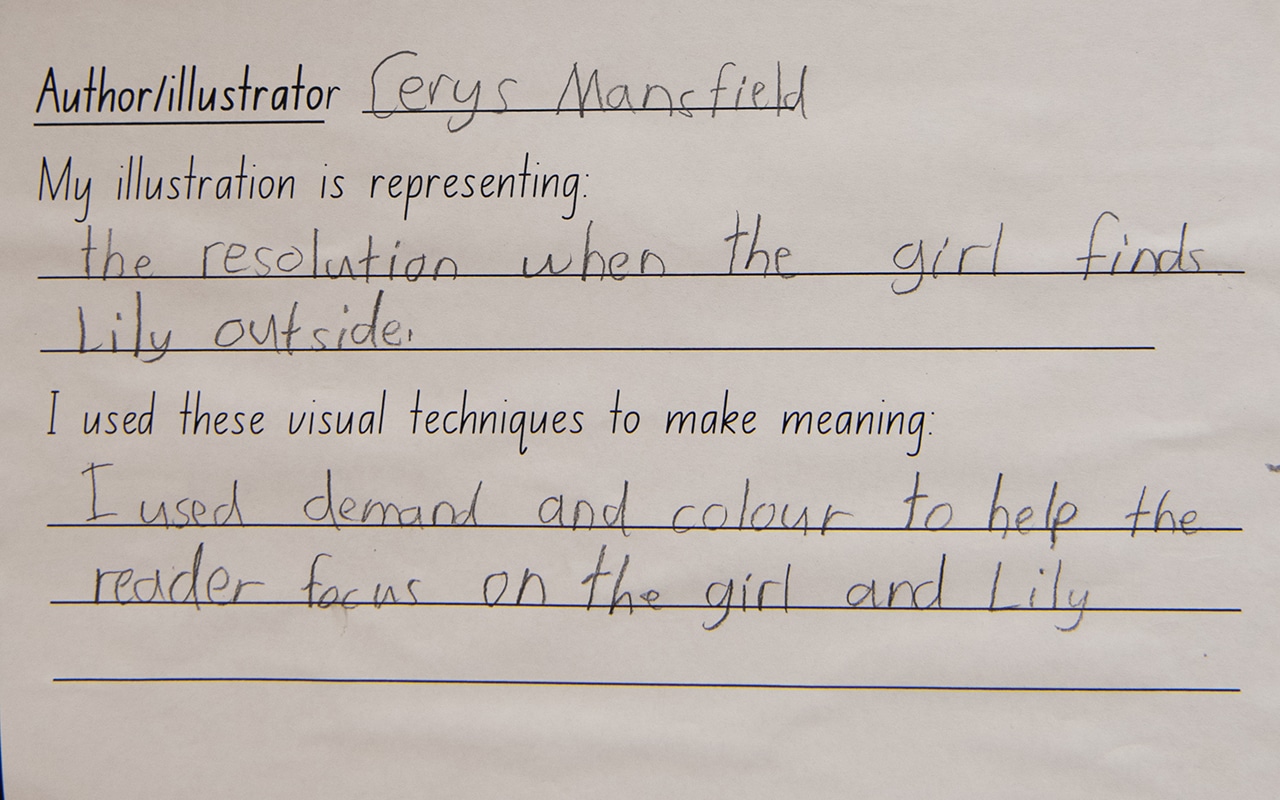 Author/illustrator Cerys Mansfield
My illustration is representing:
the resolution when the girl finds
Lily outside.
I used these visual techniques to make meaning:
I used demand and colour to help the
reader focus on the girl and Lily